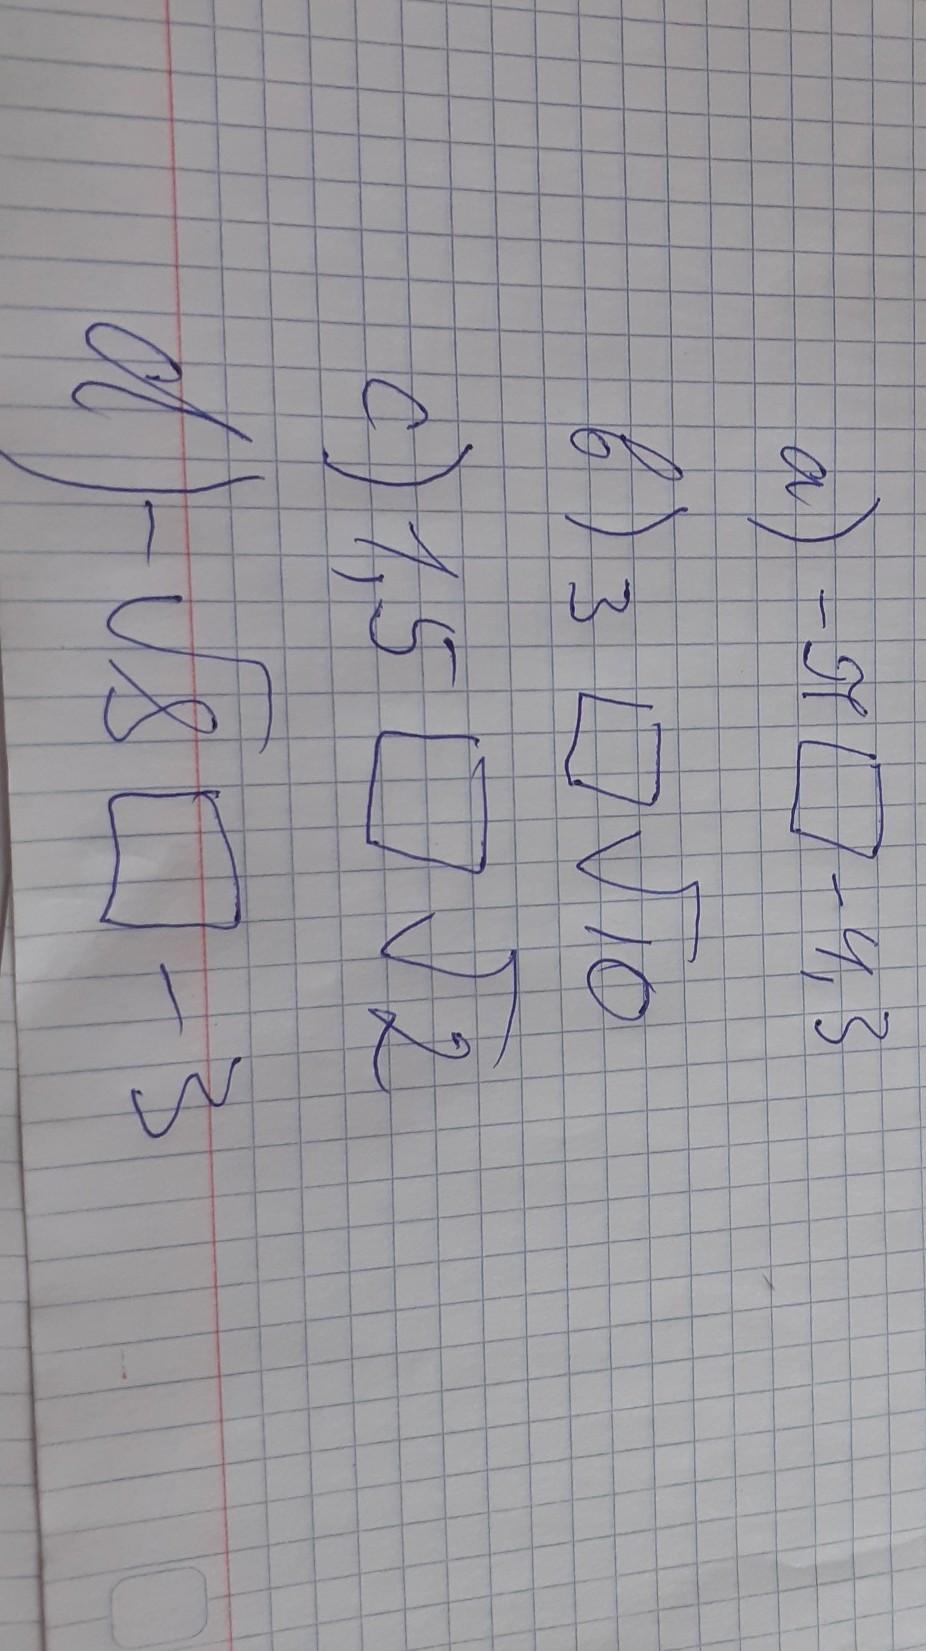 a) -π □ -4,3
b) 3 □ √10
c) 1,5 □ √2
d) -√8 □ -3